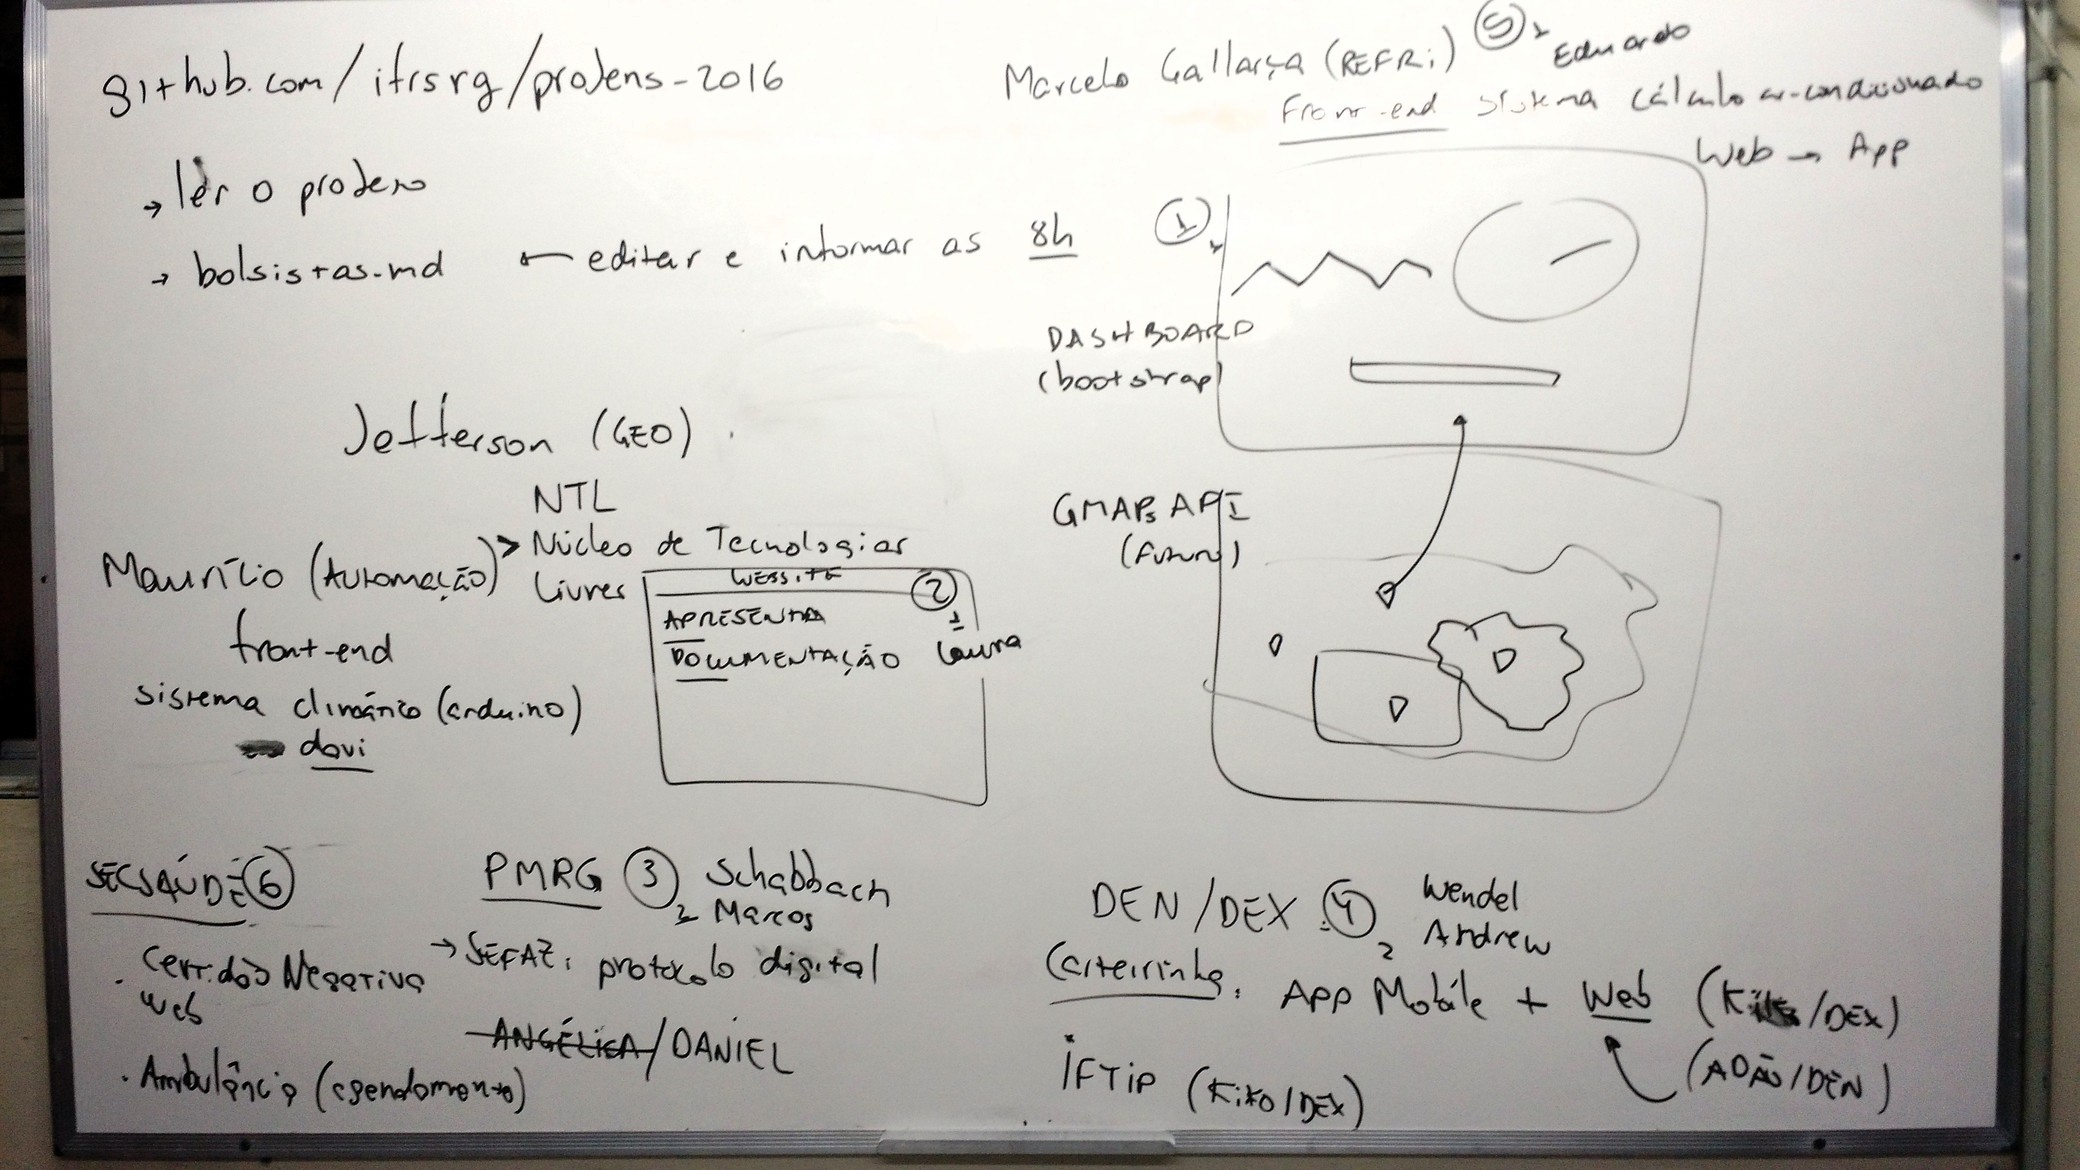 github.com/ifrsrg/projens-2016
→ ler o projens
→ bolsistas.md ← editar e informar as 8h
Marcelo Gallarça (REFRi) 5 1 Eduardo
Front-end sistema cálculo ar-condicionado
Web → App
1 1
DASHBOARD
(bootstrap)
GMAPs API
(futuro)
Jefferson (GEO)
NTL
> Núcleo de Tecnologias
Livres
Maurício (Automação)
front-end
sistema climático (arduino)
davi
WEBSITE 2
1
APRESENTA
DOCUMENTAÇÃO Laura
SECSAÚDE 6
. Certidão Negativa
web
. Ambulância (agendamento)
PMRG 3 2 Schabbach
Marcos
→ SEFAZ: protocolo digital
ANGÉLICA/DANIEL
DEN/DEX 4 2 Wendel
Andrew
Carteirinha: App Mobile + Web ( /DEX)
(ADÃO/DEN)
IFTIP (KiKO/DEX)